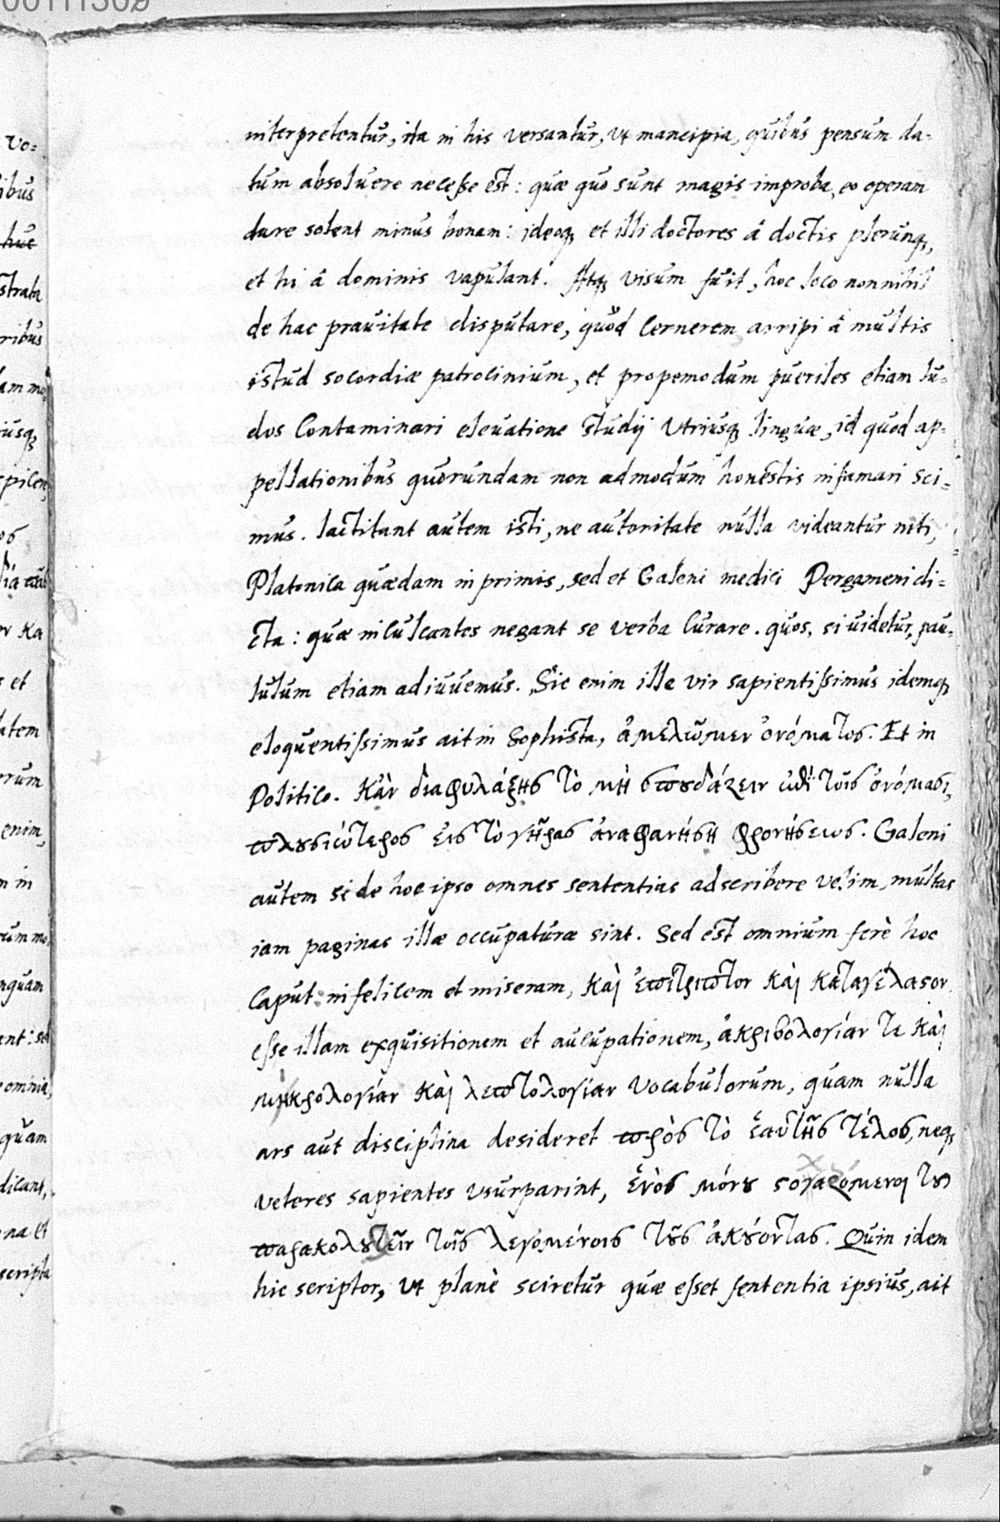 00111309
interpretentur, ita in his versantur, vt mancipia, quibus pensum da-
tum absoluere necesse est: quæ quo sunt magis improba, eo operam
dare solent minus bonam: ideoq; et illi doctores â doctis plerunq;,
et hi â dominis vapulant. Atq; visum fuit, hoc loco nonnihil
de hac prauitate disputare, quòd cernerem arripi â multis
istud socordiæ patrocinium, et propemodum pueriles etiam lu-
dos contaminari eleuatione studij vtriusq; linguæ, id quod ap-
pellationibus quorundam non admodum honestis infamari sci-
mus. Iactitant autem isti, ne autoritate nulla videantur niti,
Platonica quædam in primis, sed et Galeni medici Pergameni di-
cta: quæ inculcantes negant se verba curare. quos, si uidetur, pau-
lulum etiam adiuuemus. Sic enim ille vir sapientissimus idemq;
eloquentissimus ait in Sophista, ἀμελῶμεν ὀνόματος. Et in
Politico. Κἂν διαφυλάξῃς τὸ μὴ σπουδάζειν ἐπὶ τοῖς ὀνόμασι,
πλουσιώτερος εἰς τὸ γῆρας ἀναφανήσῃ φρονήσεως. Galeni
autem si de hoc ipso omnes sententias adscribere velim, multas
iam paginas illæ occupaturæ sint. Sed est omnium ferè hoc
caput: infelicem et miseram, καὶ ἐπίτριπτον καὶ καταγέλαστον
esse illam exquisitionem et aucupationem, ἀκριβολογίαν τε καὶ
μικρολογίαν καὶ λεπτολογίαν vocabulorum, quam nulla
ars aut disciplina desideret πρὸς τὸ ἑαυτῆς τέλος, neq;
veteres sapientes vsurparint, ἑνὸς μόνου στοχαζόμενοι τοῦ
παρακολουθεῖν τοῖς λεγομένοις τοὺς ἀκούοντας. Quin idem
hic scriptor, vt planè sciretur quæ esset sententia ipsius, ait